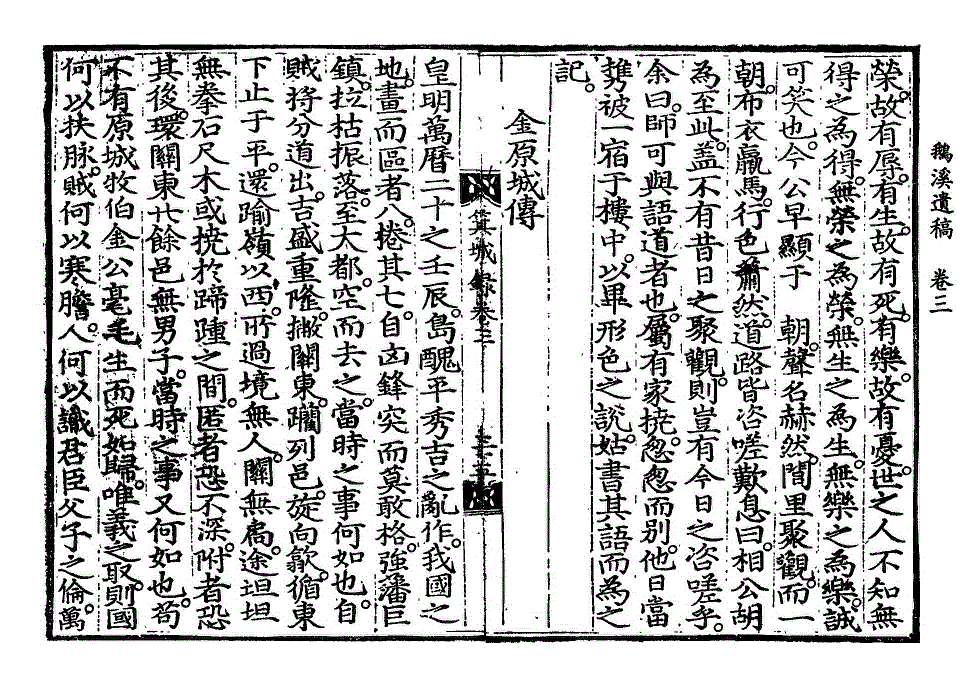 鵝溪遺稿　卷三
榮。故有辱。有生。故有死。有樂。故有憂。世之人不知無
得之為得。無榮之為榮。無生之為生。無樂之為樂。誠
可笑也。今公早顯于　朝。聲名赫然。閭里聚觀。而一
朝。布衣羸馬。行色蕭然。道路皆咨嗟歎息曰。相公胡
為至此。蓋不有昔日之聚觀。則豈有今日之咨嗟乎。
余曰。師可與語道者也。屬有家撓。怱怱而別。他日當
携被一宿于樓中。以畢形色之說。姑書其語而為之
記。
金原城傳
箕城錄卷之三
三十五
皇明萬曆二十之壬辰。島醜平秀吉之亂作。我國之
地。畫而區者八。捲其七。自凶鋒突而莫敢格。強藩巨
鎮。拉枯振落。至大都。空而去之。當時之事何如也。自
賊掎分道出。古盛重隆。撇關東。躪列邑。旋向歙。循東
下止于平。還踰嶺以西。所過境無人。關無扃。途坦坦
無拳石尺木或撓於蹄踵之間。匿者恐不深。附者恐
其後。環關東廿餘邑無男子。當時之事又何如也。苟
不有原城牧伯金公毫毛生而死如歸。唯義之取。則國
何以扶脉。賊何以寒膽。人何以識君臣父子之倫。萬